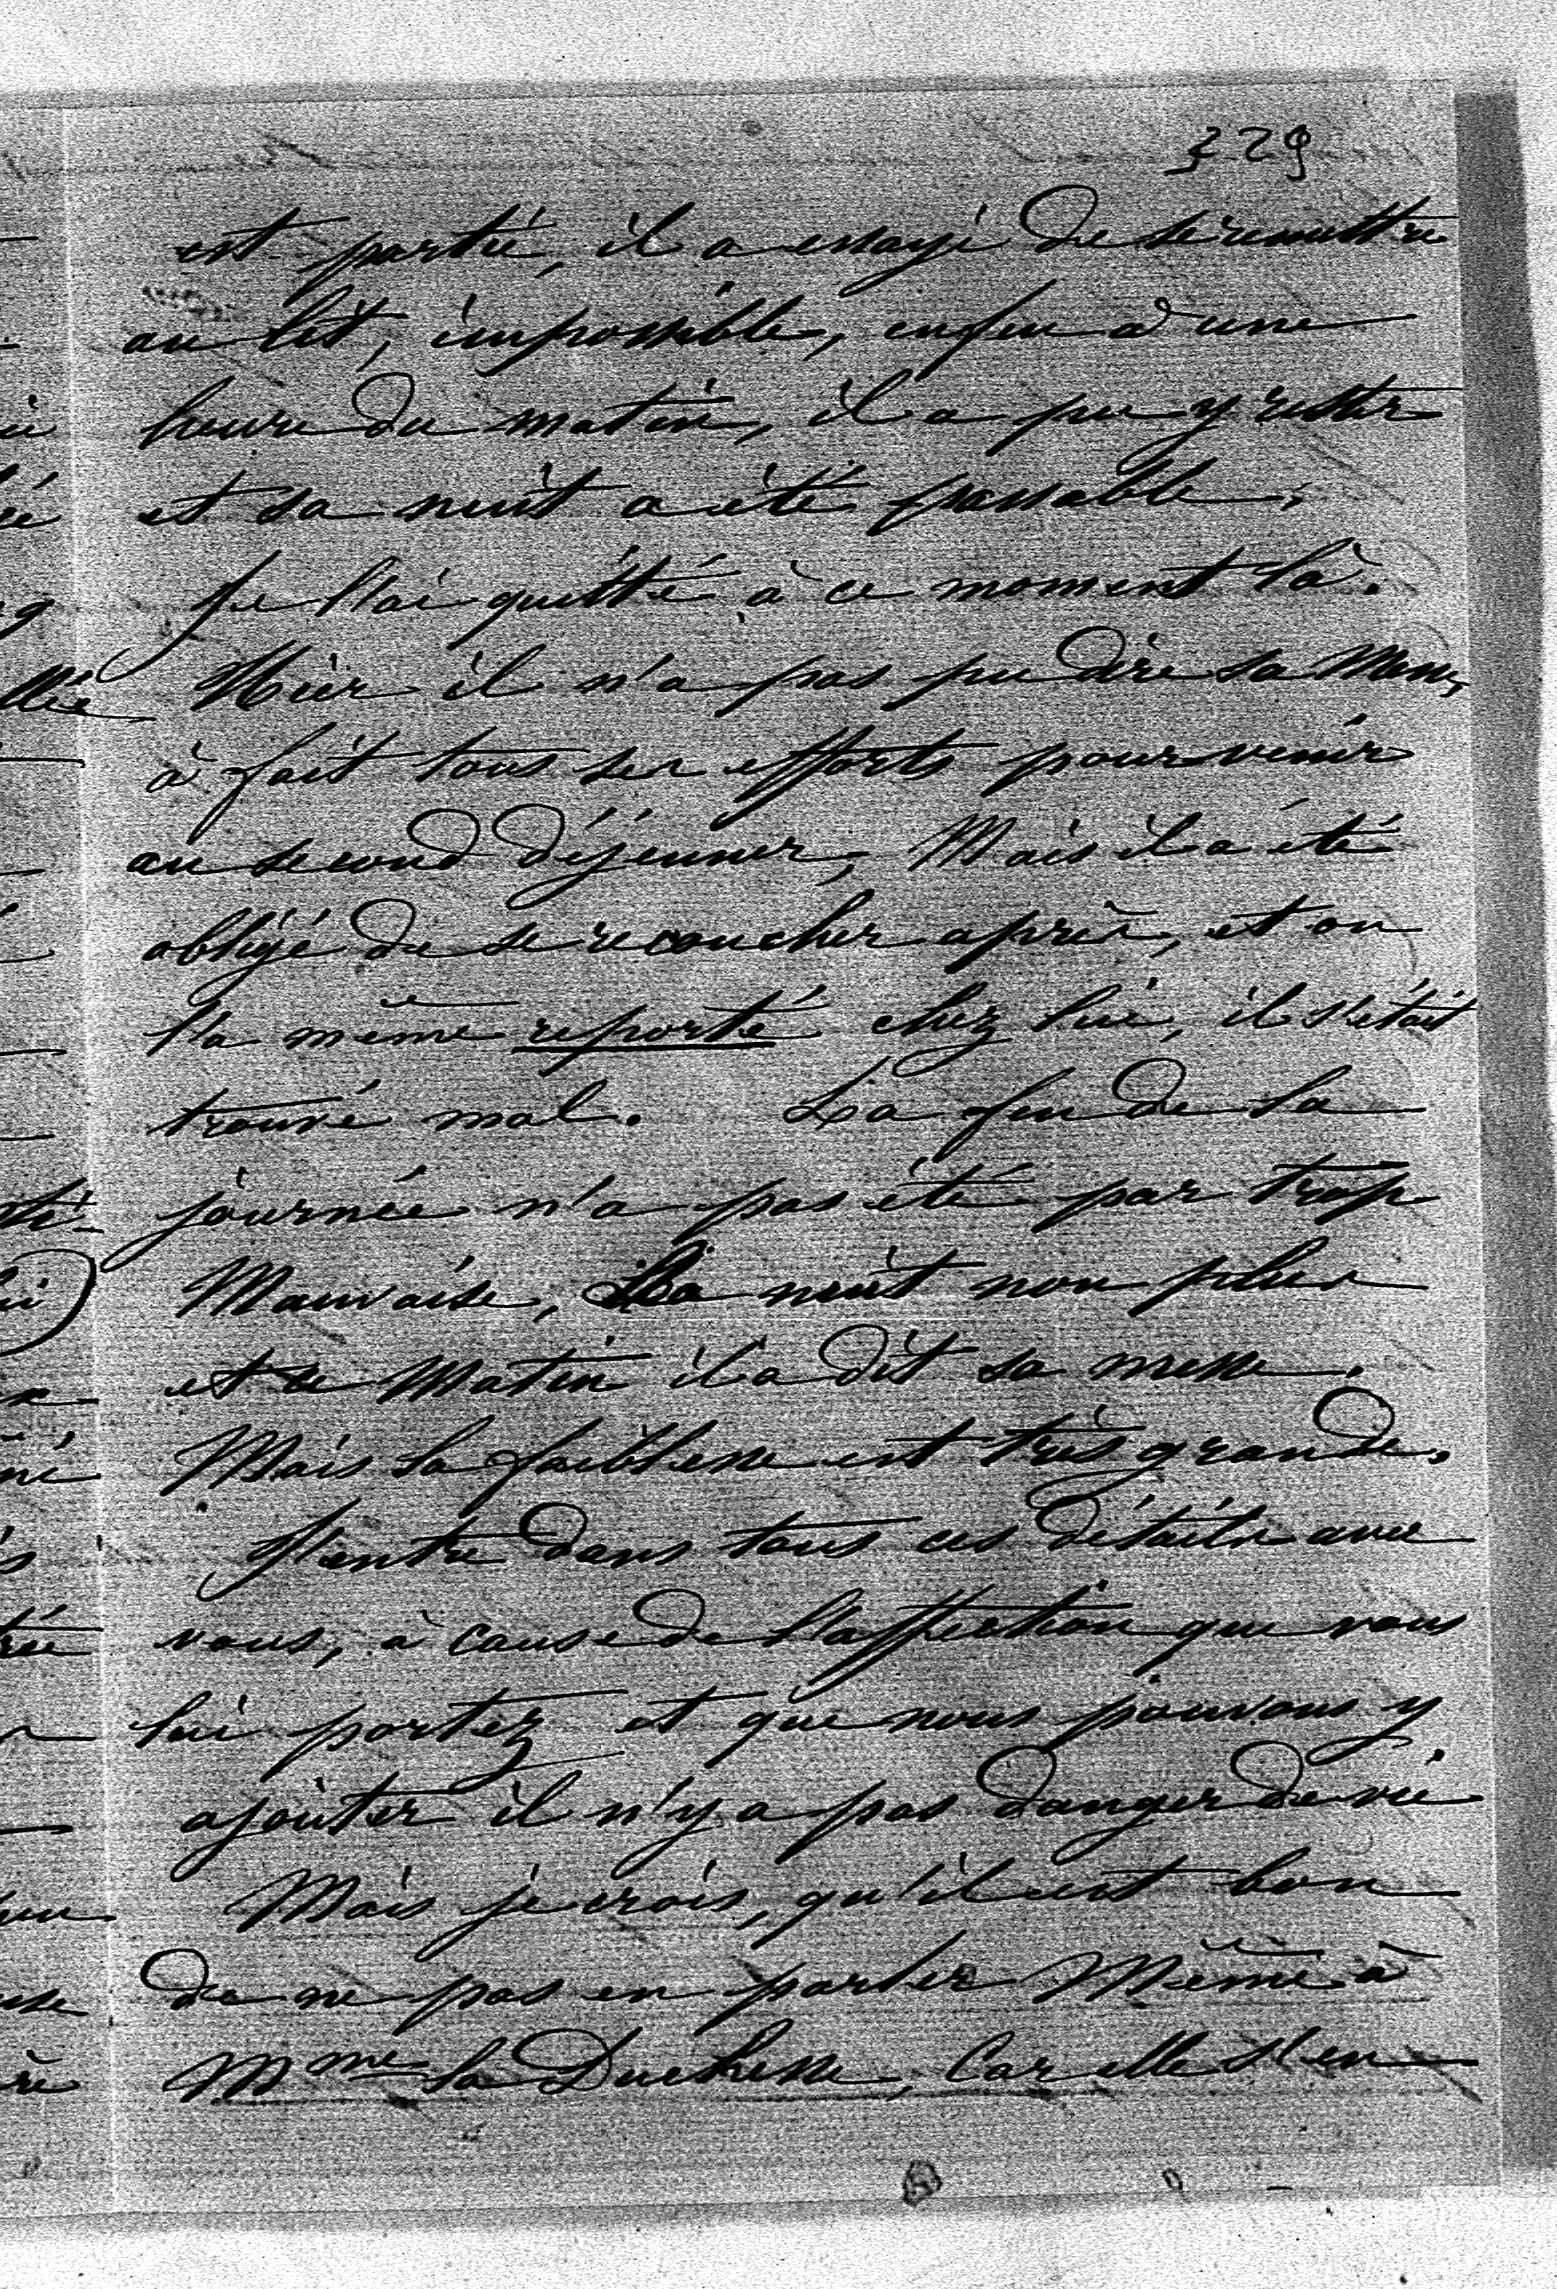 329
est partie, il a essayé de se remettre
au lit, impossible, enfin à une
heure du matin, il a pu y rester
et sa nuit a été passable,
Je l'ai quitté à ce moment là.
Hier il n'a pas pu dire sa Messe,
à fait tous ses efforts pour venir
au second déjeuner, Mais il a été
obligé de se recoucher après, et on
l'a même reporté chez lui, il s'était
trouvé mal. La fin de la
journée n'a pas été par trop
Mauvaise, La nuit non plus
et ce Matin il a dit sa messe.
Mais la faiblesse est très grande.
J'entre dans tous ces détails avec
vous, à cause de l'affection que vous
lui portez et que nous pouvons y
ajouter il n'y a pas danger de vie
Mais je crois, qu'il est bon
de ne pas en parler Même à
Mme la Duchesse, Car elle s'en